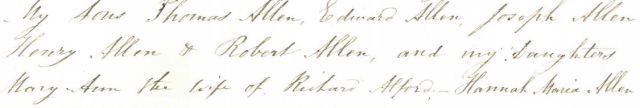 My Sons Thomas Allen, Edward Allen, Joseph Allen
Henry Allen & Robert Allen, and my Daughters
Mary Ann the wife of Richard Alford, – Hannah Maria Allen